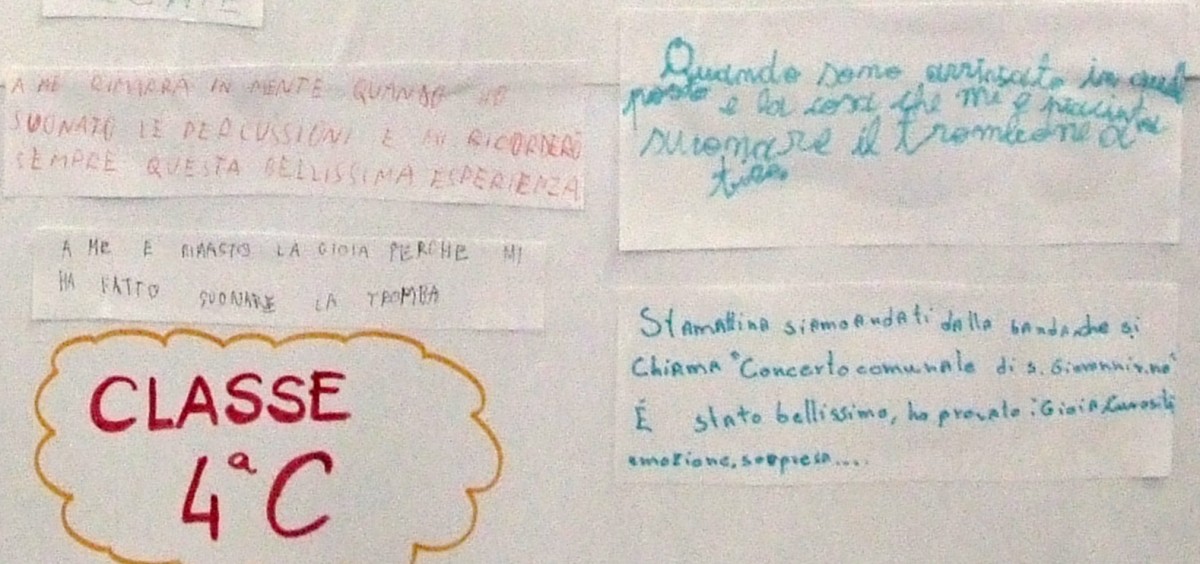 A ME RIMARRÀ IN MENTE QUANDO HO
SUONATO LE PERCUSSIONI E MI RICORDERÒ
SEMPRE QUESTA BELLISSIMA ESPERIENZA
A ME È RIMASTO LA GIOIA PERCHE MI
HA FATTO SUONARE LA TROMBA
CLASSE
4ª C
Quando sono arrivato in quel
posto e la cosa che mi è piaciuta
suonare il trombone a
tiro.
Stamattina siamo andati dalla banda che si
chiama "Concerto comunale di s. Giovannino"
È stato bellissimo, ho provato: Gioia, Curosità
emozione, sorpresa....